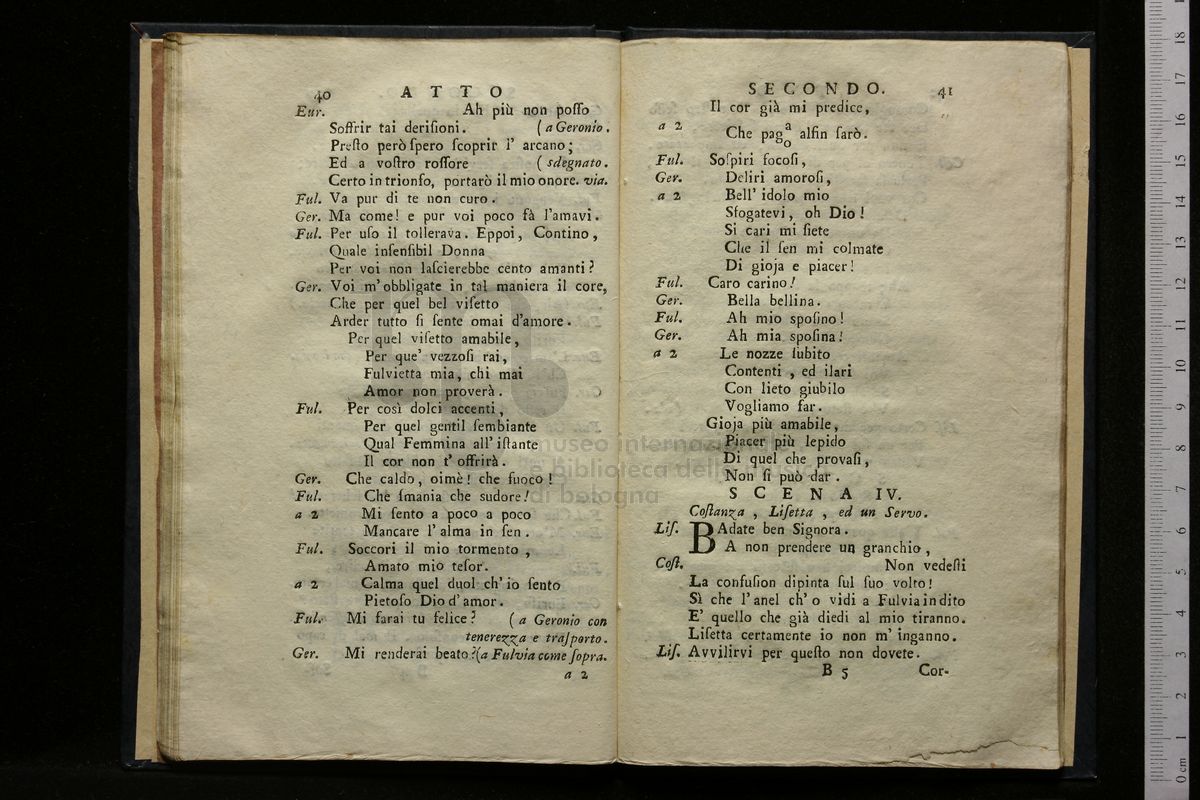 40 ATTO
Eur. Ah più non poſſo
Soffrir tai deriſioni. (a Geronio.
Preſto però ſpero ſcoprir l' arcano;
Ed a voſtro roſſore (sdegnato.
Certo in trionfo, portarò il mio onore. via.
Ful. Va pur di te non curo.
Ger. Ma come! e pur voi poco fà l'amavi.
Ful. Per uſo il tollerava. Eppoi, Contino,
Quale inſenſibil Donna
Per voi non laſcierebbe cento amanti?
Ger. Voi m'obbligate in tal maniera il core,
Che per quel bel viſetto
Arder tutto ſi ſente omai d'amore.
Per quel viſetto amabile,
Per que' vezzoſi rai,
Fulvietta mia, chi mai
Amor non proverà.
Ful. Per così dolci accenti,
Per quel gentil ſembiante
Qual Femmina all' iſtante
Il cor non t' offrirà.
Ger. Che caldo, oimè! che fuoco!
Ful. Che ſmania che sudore!
a 2 Mi ſento a poco a poco
Mancare l' alma in ſen.
Ful. Soccori il mio tormento,
Amato mio teſor.
a 2 Calma quel duol ch' io ſento
Pietoſo Dio d' amor.
Ful. Mi farai tu felice? (a Geronio con
tenerezza e traſporto.
Ger. Mi renderai beato?(a Fulvia come ſopra.
a 2
SECONDO. 41
Il cor già mi predice,
a 2 Che pag a/o alfin ſarò.
Ful. Soſpiri focoſi,
Ger. Deliri amoroſi,
a 2 Bell' idolo mio
Sfogatevi, oh Dio!
Si cari mi ſiete
Che il ſen mi colmate
Di gioja e piacer!
Ful. Caro carino!
Ger. Bella bellina.
Ful. Ah mio spoſino!
Ger. Ah mia spoſina!
a 2 Le nozze ſubito
Contenti, ed ilari
Con lieto giubilo
Vogliamo far.
Gioja più amabile,
Piacer più lepido
Di quel che provaſi,
Non ſi può dar.
SCENA IV.
Coſtanza, Liſetta, ed un Servo.
Liſ. BAdate ben Signora.
A non prendere un granchio,
Coſt. Non vedeſti
La confuſion dipinta ſul ſuo volto!
Sì che l'anel ch' o vidi a Fulvia in dito
E' quello che già diedi al mio tiranno.
Liſetta certamente io non m' inganno.
Liſ. Avvilirvi per queſto non dovete.
B 5 Cor-
museo internazionale
e biblioteca della musica
di bologna
0 cm 1 2 3 4 5 6 7 8 9 10 11 12 13 14 15 16 17 18